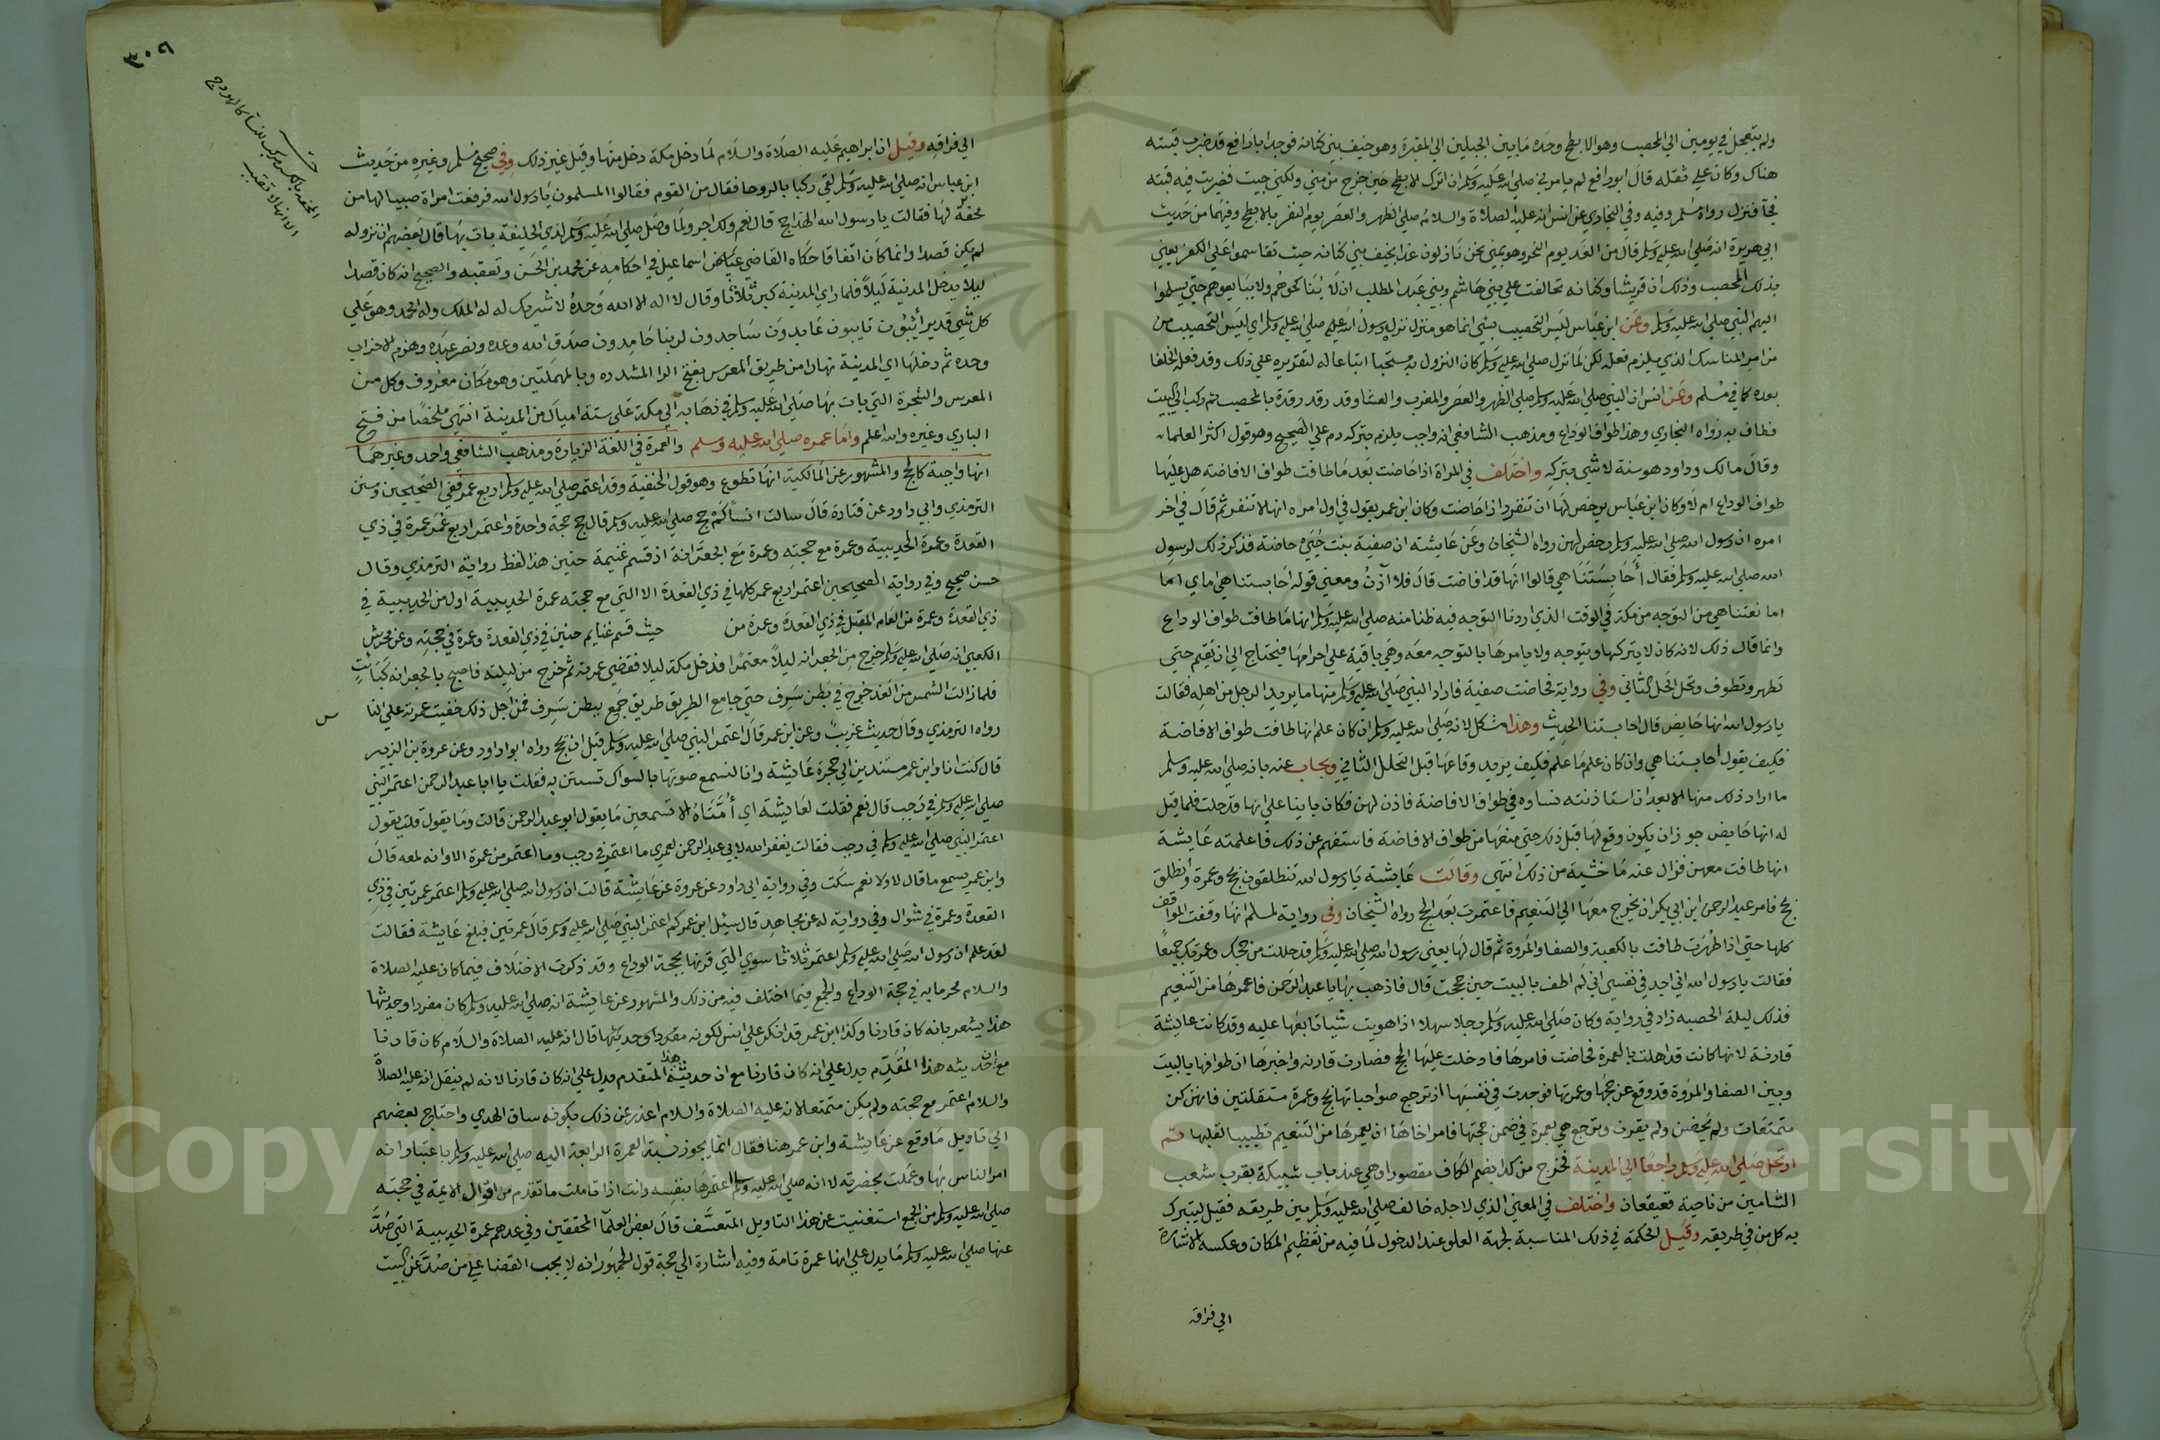 ولم يتعجل في يومين الي المحصب وهو الابطح وحده ما بين الجبلين الي المقبرة وهو خيف بني كنانة فوجد ابا رافع قد ضرب قبته
هناك وكان علي ثقله قال ابو رافع لم يامرني صلي الله عليه وسلم ان انزل الابطح حين خرج من مني ولكني جيت فضربت فيه قبته
فجا فنزل رواه مسلم وفيه وفي البخاري عن انس انه عليه الصلاة والسلام صلي الظهر والعصر يوم النفر بالابطح وفيهما من حديث
ابي هريرة انه صلي الله عليه وسلم قال من الغد يوم النحر وهو بمني نحن نازلون غدا بخيف بني كنانه حيث تقاسموا علي الكفر يعني
بذلك المحصب وذلك ان قريشا وكنانه تحالفت علي بني هاشم وبني عبد المطلب ان لا يناكحوهم ولا يبايعوهم حتي يسلموا
اليهم النبي صلي الله عليه وسلم وعن ابن عباس ليس التحصيب بشي انما هو منزل نزله رسول الله صلي الله عليه وسلم اي ليس التحصيب من
من امر المناسك الذي يلزم فعله لكن لما نزل صلي الله عليه وسلم كان النزول به مستحبا اتباعا له لتقريره علي ذلك وقد فعله الخلفا
بعده كما في مسلم وعن انس ان النبي صلي الله عليه وسلم صلي الظهر والعصر والمغرب والعشا وقد رقد رقدة بالمحصب ثم ركب الي البيت
فطاف به رواه البخاري وهذا طواف الوداع ومذهب الشافعي انه واجب يلزم بتركه دم علي الصحيح وهو قول اكثر العلماء
وقال مالك وداود هو سنة لا شي بتركه واختلف في المراة اذا حاضت بعد ما طافت طواف الافاضه هل عليها
طواف الوداع ام لا وكان ابن عباس يرخص لها ان تنفر اذا حاضت وكان ابن عمر يقول في اول امره انها لا تنفر ثم قال في اخر
امره ان رسول الله صلي الله عليه وسلم رخص لهن رواه الشيخان وعن عايشه ان صفية بنت حيي حاضت فذكر ذلك لرسول
الله صلي الله عليه وسلم فقال أحابستنا هي قالوا انها قد افاضت قال فلا اذن ومعني قوله احابستنا هي اي
امانعتنا هي من التوجه من مكة في الوقت الذي اردنا التوجه فيه ظنا منه صلي الله عليه وسلم انها ما طافت طواف الوداع
وانما قال ذلك لانه كان لا يتركها ويتوجه ولا يامرها بالتوجه معه وهي باقية علي احرامها فيحتاج الي ان يقيم حتي
تطهر وتطوف وتحل الحل الثاني وفي رواية فحاضت صفية فاراد النبي صلي الله عليه وسلم منها ما يريد الرجل من اهله فقالت
يا رسول الله انها حايض قال احابستنا الحديث وهذا مشكل لانه صلي الله عليه وسلم ان كان علم انها طافت طواف الافاضة
فكيف يقول احابستنا هي وان كان علم ما علم فكيف يريد وقاعها قبل التحلل الثاني ويجاب عنه بانه صلي الله عليه وسلم
ما اراد ذلك منها الا بعد ان استاذنته نساوه في طواف الافاضة فاذن لهن فكان بانيا علي انها قد حلت فلما قيل
له انها حايض جوز ان يكون وقع لها قبل ذلك حتي منعها من طواف الافاضة فاستفهم عن ذلك فاعلمته عايشة
انها طافت معهن فزال عنه ما خشيه من ذلك انتهي وقالت عايشة يا رسول الله تنطلقون بحج وعمرة وانطلق
بحج فامر عبد الرحمن ابن ابي بكر ان يخرج معها الي التنعيم فاعتمرت بعد الحج رواه الشيخان وفي رواية لمسلم انها وقفت المواقف
كلها حتي اذا طهرت طافت بالكعبة والصفا والمروة ثم قال لها يعني رسول الله صلي الله عليه وسلم قد حللت من حجك وعمرتك جميعا
فقالت يا رسول الله اني اجد في نفسي اني لم اطف بالبيت حين حججت قال فاذهب بها يا عبد الرحمن فاعمرها من التنعيم
فذلك ليلة الحصبه زاد في رواية وكان صلي الله عليه وسلم رجلا سهلا اذا هويت شيا تابعها عليه وقد كانت عايشة
قارنة لانها كانت قد اهلت بالعمرة فحاضت فامرها فادخلت عليها الحج فصارت قارنه واخبرها ان طوافها بالبيت
وبين الصفا والمروة قد وقع عن حجها وعمرتها فوجدت في نفسها ان ترجع صواحباتها بحج وعمرة مستقلتين فانهن كن
متمتعات ولم يحضن ولم يقرن وترجع هي بعمرة في ضمن حجتها فامر اخاها ان يعمرها من التنعيم تطييبا لقلبها ثم
ارتحل صلي الله عليه وسلم راجعا الي المدينة فخرج من كدا بضم الكاف مقصورا وهي عند باب شبيكة بقرب شعب
الشامين من ناحية قعيقعان واختلف في المعني الذي لاجله خالف صلي الله عليه وسلم بين طريقه فقيل ليتبرك
به كل من في طريقه وقيل الحكمة في ذلك المناسبة لجهة العلو عند الدخول لما فيه من تعظيم المكان وعكسه الاشارة
الي فراقه
٣٠٩
المحفة بالكسر مركب للنسا كالهودج
الا انها لا تقبب
الي فراقه وقيل ان ابراهيم عليه الصلاة والسلام لما دخل مكة دخل منها وقيل غير ذلك وفي صحيح مسلم وغيره من حديث
ابن عباس انه صلي الله عليه وسلم لقي ركبا بالروحا فقال من القوم فقالوا المسلمون يا رسول الله فرفعت امراة صبيا لها من
محفة لها فقالت يا رسول الله الهذا حج قال نعم ولك اجر ولما وصل صلي الله عليه وسلم لذي الحليفة بات بها قال بعضهم ان نزوله
لم يكن قصدا وانما كان اتفاقا حكاه القاضي عياض اسماعيل في احكامه عن محمد بن الحسن وتعقبه والصحيح انه كان قصدا
ليلا يدخل المدينة ليلا فلما راي المدينة كبر ثلاثا وقال لا اله الا الله وحده لا شريك له له الملك وله الحمد وهو علي
كل شي قدير آئبون تايبون عابدون ساجدون لربنا حامدون صدق الله وعده ونصر عبده وهزم الاحزاب
وحده ثم دخلها اي المدينة نهارا من طريق المعرس بفتح الرا المشدده وبالمهملتين وهو مكان معروف وكل من
المعرس والشجرة التي بات بها صلي الله عليه وسلم في ذهابه الي مكة علي ستة اميال من المدينة انتهي ملخصا من فتح
الباري وغيره والله اعلم واما عمره صلي الله عليه وسلم والعمرة في اللغة الزيارة ومذهب الشافعي واحمد وغيرهما
انها واجبة كالحج والمشهور عن المالكية انها تطوع وهو قول الحنفية وقد اعتمر صلي الله عليه وسلم اربع عمر ففي الصحيحين وسنن
الترمذي وابي داود عن قتادة قال سالت انسا كم حج صلي الله عليه وسلم قال حج حجة واحدة واعتمر اربع عمر عمرة في ذي
القعدة وعمرة الحديبية وعمرة مع حجته وعمرة مع الجعرانة اذ قسم غنيمة حنين هذا لفظ رواية الترمذي وقال
حسن صحيح وفي رواية الصحيحين اعتمر اربع عمر كلها في ذي القعدة الا التي مع حجته عمرة الحديبية او من الحديبية في
ذي القعدة وعمرة من العام المقبل في ذي القعدة وعمرة من حيث قسم غنايم حنين في ذي القعدة وعمرة في حجته وعن محرش
الكعبي انه صلي الله عليه وسلم خرج من الجعرانه ليلا معتمرا فدخل مكة ليلا فقضي عمرته ثم خرج من ليلته فاصبح بالجعرانه كبائت
فلما زالت الشمس من الغد خرج في بطن سرف حتي جامع الطريق طريق جمع ببطن سرف فمن اجل ذلك خفيت عمرته علي النا
س
رواه الترمذي وقال حديث غريب وعن ابن عمر قال اعتمر النبي صلي الله عليه وسلم قبل ان يحج رواه ابو داود وعن عروة بن الزبير
قال كنت انا وابن عمر مستندين الي حجرة عايشة وانا لنسمع صوتها بالسواك تستن به فقلت يا ابا عبد الرحمن اعتمر النبي
صلي الله عليه وسلم في رجب قال نعم فقلت لعايشة اي أمتاه الا تسمعين ما يقول ابو عبد الرحمن قالت وما يقول قلت يقول
اعتمر النبي صلي الله عليه وسلم في رجب فقالت يغفر الله لابي عبد الرحمن لعمري ما اعتمر في رجب وما اعتمر من عمرة الا وانه لمعه قال
وابن عمر يسمع ما قال لا ولا نعم سكت وفي رواية ابي داود عن عروة عن عايشة قالت ان رسول الله صلي الله عليه وسلم اعتمر عمرتين في ذي
القعدة وعمرة في شوال وفي رواية له عن مجاهد قال سئل ابن عمر كم اعتمر النبي صلي الله عليه وسلم قال عمرتين فبلغ عايشة فقالت
لقد علم ان رسول الله صلي الله عليه وسلم اعتمر ثلاثا سوي التي قرنها بحجة الوداع وقد ذكرت الاختلاف فيما كان عليه الصلاة
والسلام محرما به في حجة الوداع والجمع فيما اختلف فيه من ذلك والمشهور عن عايشة انه صلي الله عليه وسلم كان مفردا وحديثها
هذا يشعر بانه كان قارنا وكذا ابن عمر قد انكر علي انس لكونه مفردا وحديثها قال انه عليه الصلاة والسلام كان قارنا
مع ان حديثه هذا المقدم يدل علي انه كان قارنا مع ان حديثه هذا المتقدم يدل علي انه كان قارنا لانه لم ينقل انه عليه الصلاة
والسلام اعتمر مع حجته ولم يكن متمتعا لانه عليه الصلاة والسلام اعتذر عن ذلك بكونه ساق الهدي واحتاج بعضهم
الي تاويل ما وقع عن عايشة وابن عمر هنا فقال انما يجوز نسبة العمرة الرابعة اليه صلي الله عليه وسلم باعتبار انه
امر الناس بها وعملت بحضرته لا انه صلي الله عليه وسلم اعتمرها بنفسه وانت اذا تاملت ما تقدم من اقوال الايمة في حجته
صلي الله عليه وسلم من الجمع استغنيت عن هذا التاويل المتعسف قال بعض العلما المحققين وفي عدهم عمرة الحديبية التي صد
عنها صلي الله عليه وسلم ما يدل علي انها عمرة تامة وفيه اشارة الي صحة قول الجمهور انه لا يجب القضا علي من صد عن البيت
Copyright © King Saud University
1957